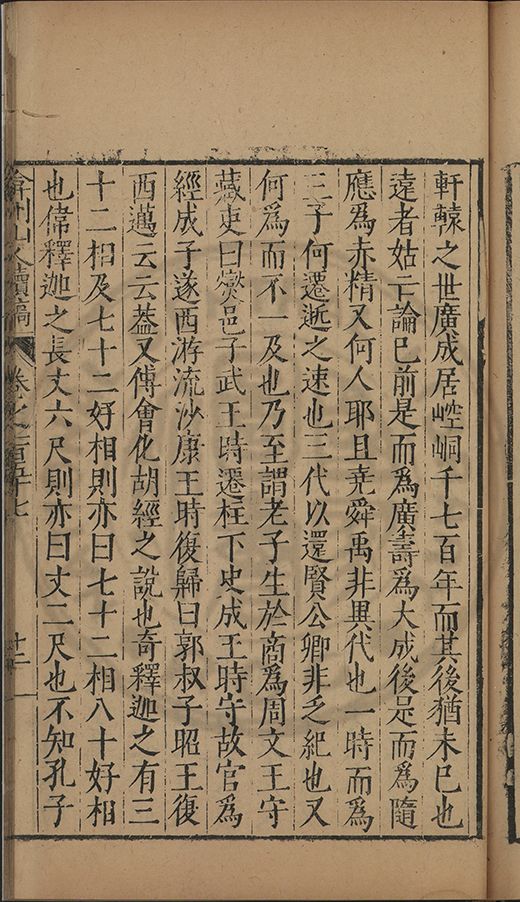 軒轅之世廣成居崆峒千七百年而其後猶未已也
遠者姑亡論已前是而爲廣壽爲大成後是而爲隨
應爲赤精又何人耶且堯舜禹非異代也一時而爲
三子何遷逝之速也三代以還賢公卿非乏紀也又
何爲而不一及也乃至謂老子生於商爲周文王守
藏吏曰燮邑子武王時遷柱下史成王時守故官爲
經成子遂西游流沙康王時復歸曰郭叔子昭王復
西邁云云葢又傅會化胡經之說也奇釋迦之有三
十二相及七十二好相則亦曰七十二相八十好相
也偉釋迦之長丈六尺則亦曰丈二尺也不知孔子
弇州山人續稿 卷之一百五十七 十二